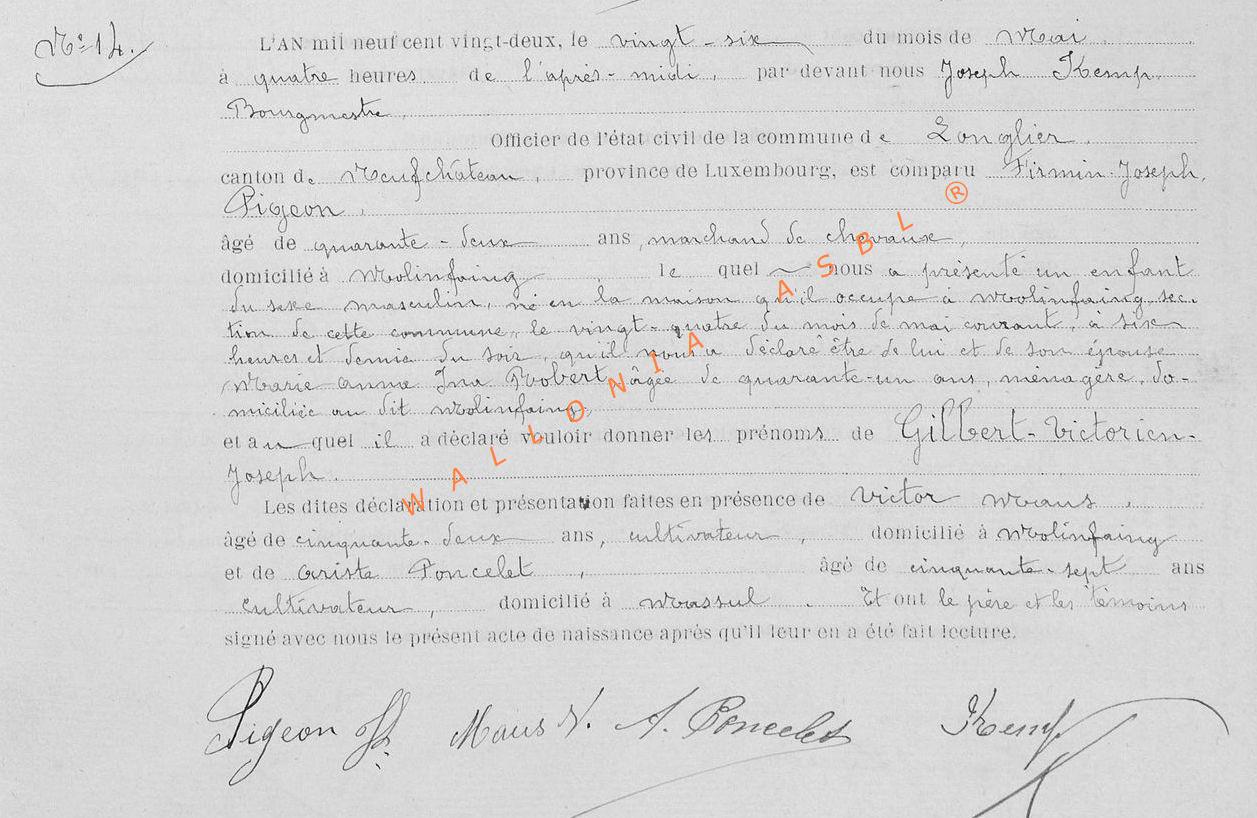 No 14.
L'AN mil neuf cent vingt-deux, le vingt-six du mois de Mai.
à quatre heures de l'après-midi, par devant nous Joseph Kemp.
Bourgmestre.
Officier de l'état civil de la commune de Longlier.
canton de Neufchâteau, province de Luxembourg, est comparu Firmin-Joseph,
Pigeon.
âgé de quarante-deux ans, marchand de chevaux,
domicilié à Molinfaing le quel nous a présenté un enfant
du sexe masculin, né en la maison qu'il occupe à Molinfaing, sec-
tion de cette commune, le vingt-quatre du mois de mai courant, à six
heures et demie du soir, qu'il nous a déclaré être de lui et de son épouse
Marie Anna Ina Robert, âgée de quarante-un ans, ménagère, do-
miciliée au dit Molinfaing,
et au quel il a déclaré vouloir donner les prénoms de Gilbert-Victorien-
Joseph.
Les dites déclaration et présentation faites en présence de Victor Maus,
âgé de cinquante-deux ans, cultivateur, domicilié à Molinfaing
et de Ariste Poncelet, âgé de cinquante-sept ans
cultivateur, domicilié à Massul. Et ont le père et les témoins
signé avec nous le présent acte de naissance après qu'il leur en a été fait lecture.
Pigeon Maus V. A. Poncelet Kemp
WALLONIA ASBL ®